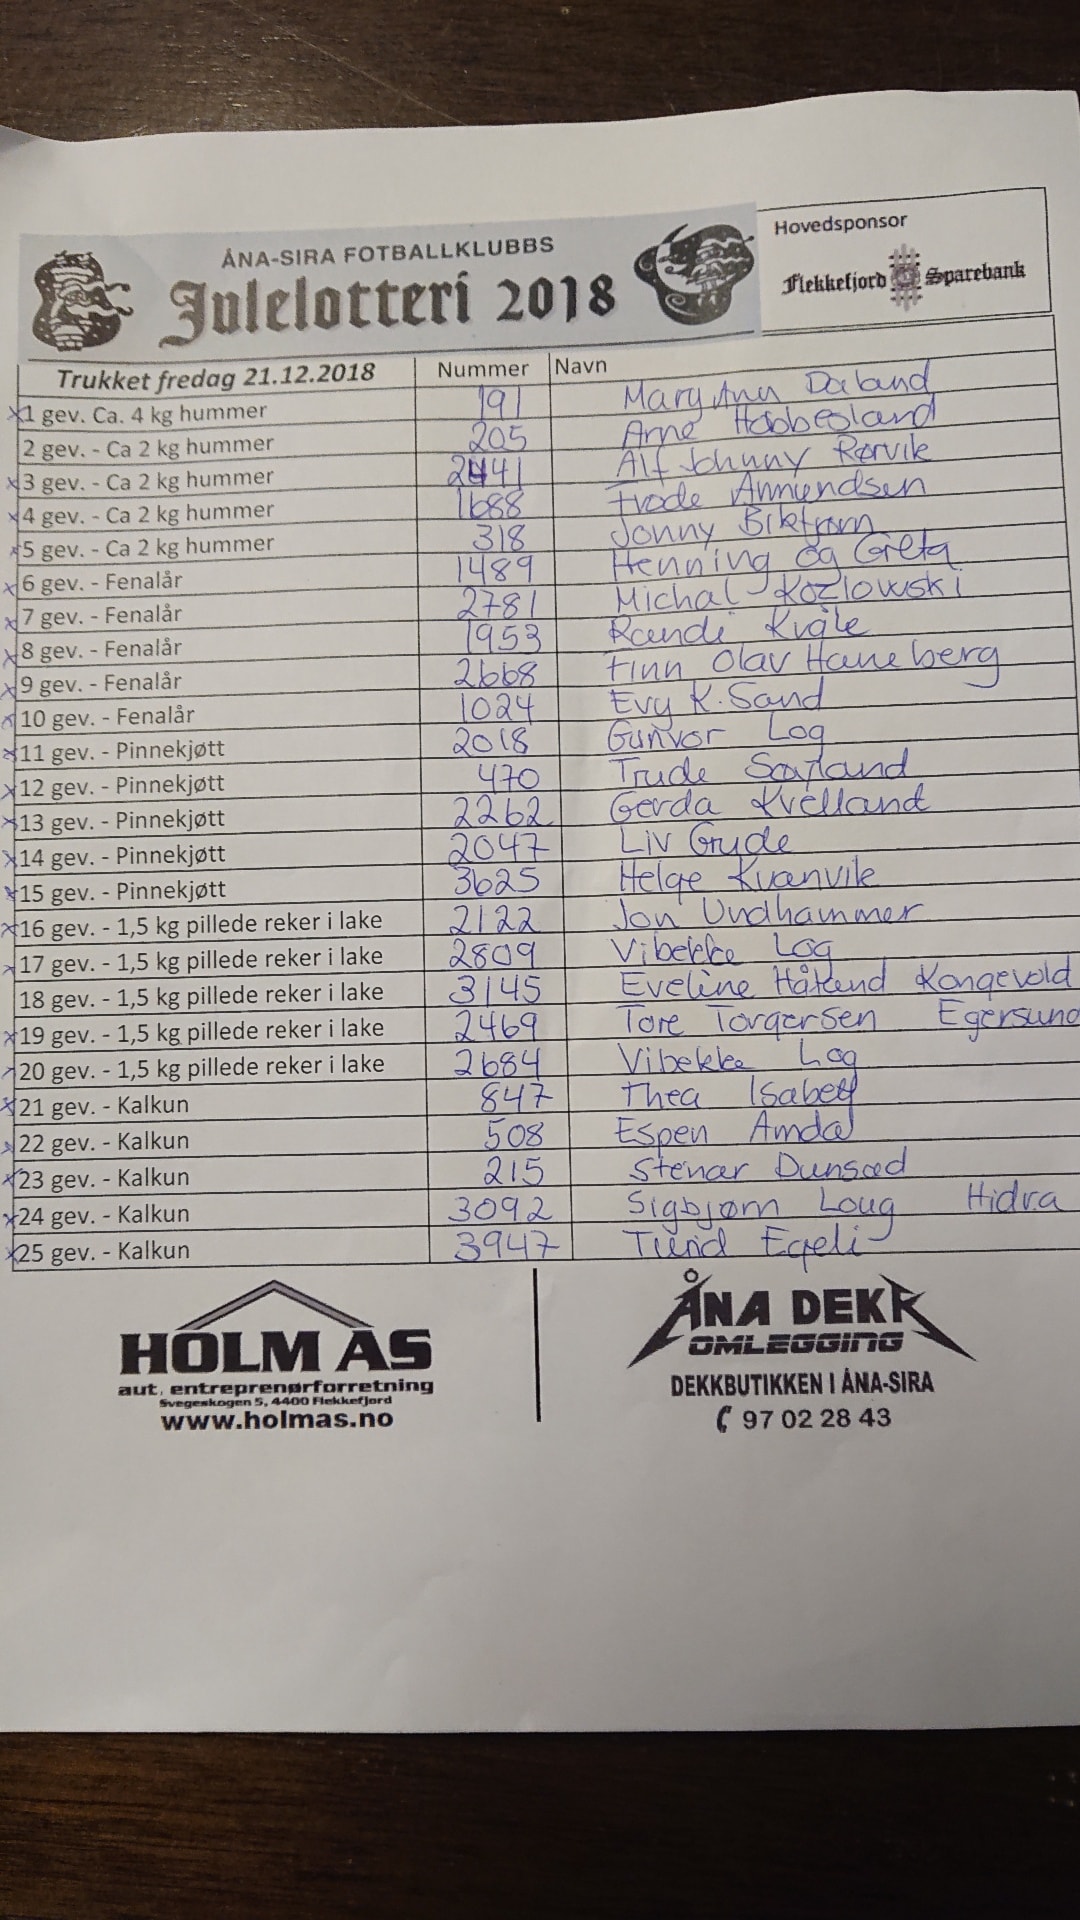 ÅNA-SIRA FOTBALLKLUBBS
Julelotteri 2018
Hovedsponsor
Flekkefjord Sparebank
Trukket fredag 21.12.2018 Nummer Navn
x1 gev. Ca. 4 kg hummer 191 Mary Ann Daland
2 gev. - Ca 2 kg hummer 205 Arne Habbesland
x3 gev. - Ca 2 kg hummer 2441 Alf Johnny Rørvik
x4 gev. - Ca 2 kg hummer 1688 Frode Amundsen
x5 gev. - Ca 2 kg hummer 318 Jonny
x6 gev. - Fenalår 1489 Henning og Greta
x7 gev. - Fenalår 2781 Michal Kozlowski
x8 gev. - Fenalår 1953 Randi Kvåle
x9 gev. - Fenalår 2668 Finn Olav Haneberg
x10 gev. - Fenalår 1024 Evy K. Sand
x11 gev. - Pinnekjøtt 2018 Gunvor Log
x12 gev. - Pinnekjøtt 470 Trude
x13 gev. - Pinnekjøtt 2262 Gerda Kvelland
x14 gev. - Pinnekjøtt 2047 Liv Grude
x15 gev. - Pinnekjøtt 3625 Helge Kvanvik
x16 gev. - 1,5 kg pillede reker i lake 2122 Jon Undhammer
x17 gev. - 1,5 kg pillede reker i lake 2809 Vibekke Log
18 gev. - 1,5 kg pillede reker i lake 3145 Eveline Håland Kongevold
x19 gev. - 1,5 kg pillede reker i lake 2469 Tore Torgersen Egersund
x20 gev. - 1,5 kg pillede reker i lake 2684 Vibekke Log
x21 gev. - Kalkun 847 Thea Isabell
x22 gev. - Kalkun 508 Espen Amdal
x23 gev. - Kalkun 215 Stenar Dunsæd
x24 gev. - Kalkun 3092 Sigbjørn Loug Hidra
x25 gev. - Kalkun 3947 Turid Egeli
HOLM AS
aut. entreprenørforretning
Svegeskogen 5, 4400 Flekkefjord
www.holmas.no
ÅNA DEKK
OMLEGGING
DEKKBUTIKKEN I ÅNA-SIRA
97 02 28 43